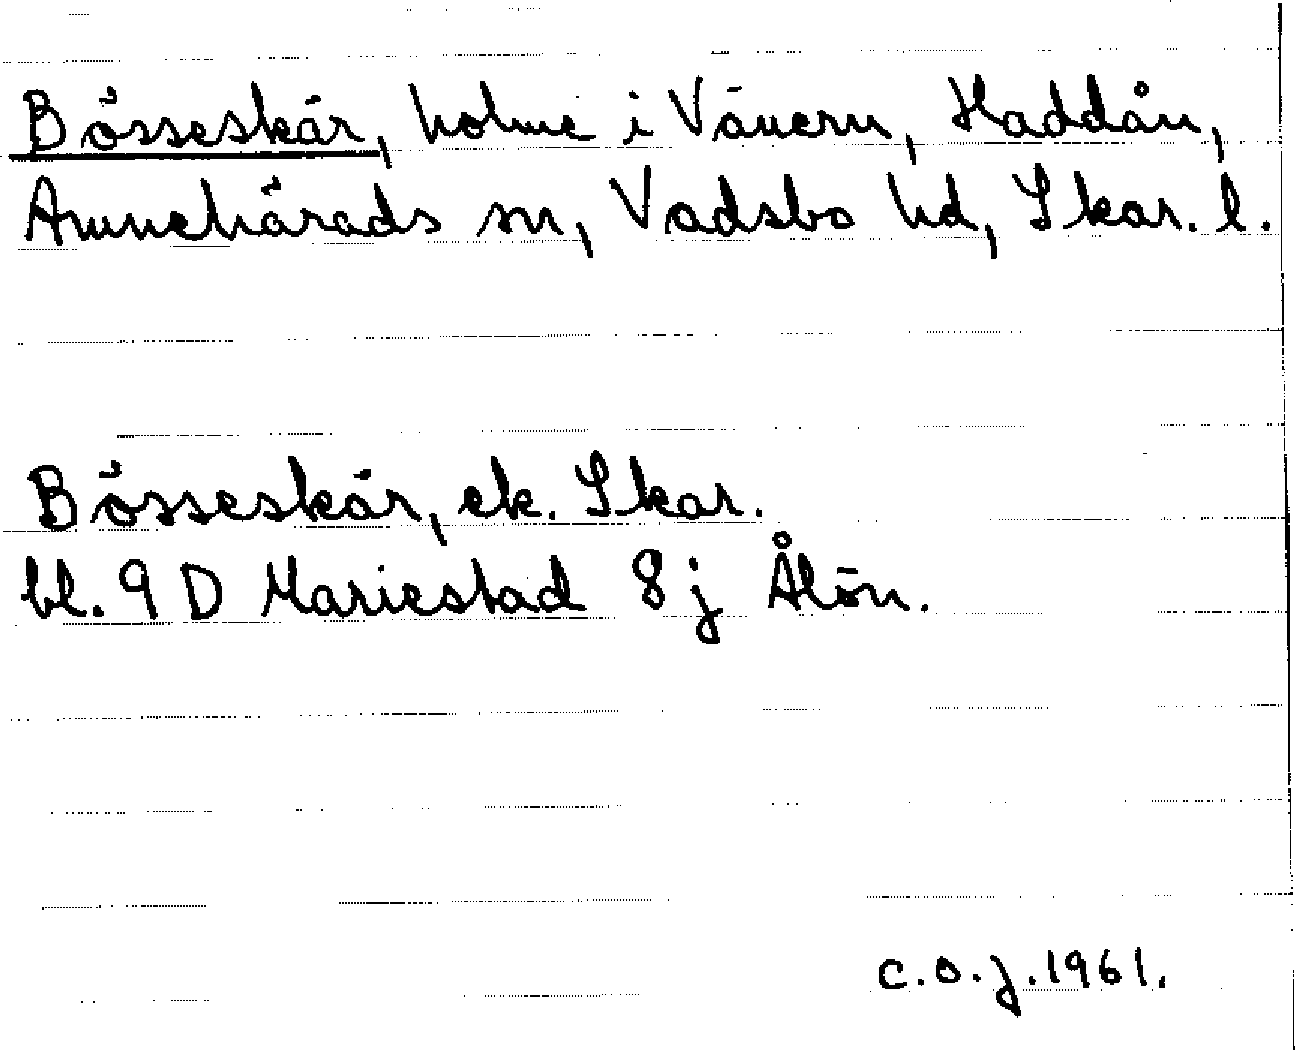 Bösseskär, holme i Vänern, Haddån,
Amnehärads sn, Vadsbo hd, Skar. l.
Bösseskär, ek. Skar.
bl. 9 D Mariestad 8 j Ålön.
C.O.J. 1961.